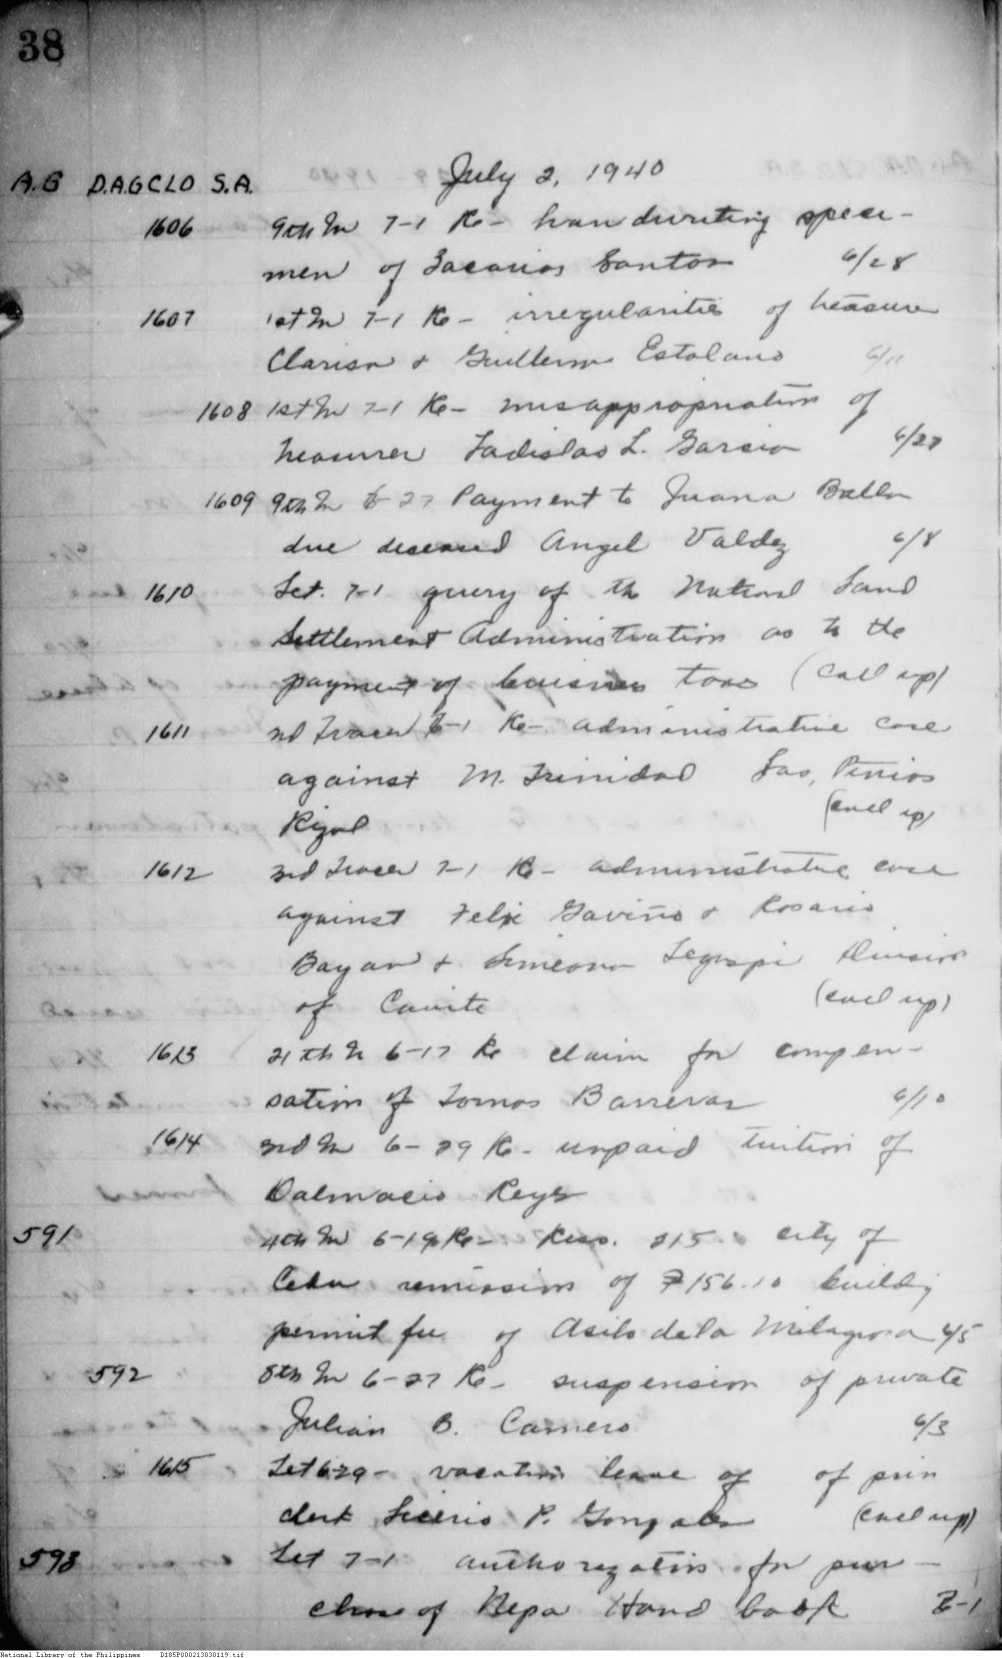 38
A.G D.A.G CLO S.A. July 2, 1940
1606 9th In 7-1 Re- handwriting speci-
men of Zacarias Santos 6/28
1607 1st In 7-1 Re- irregularities of treasurer
Clarisa & Guillermo Estolano 6/11
1608 1st In 7-1 Re- misappropriation of
treasurer Ladislao L. Garcia 6/27
1609 9th In 6-27 Payment to Juana
due deceased Angel Valdez 6/8
1610 Let. 7-1 query of the National Land
Settlement Administration as to the
payment of business taxes (call up)
1611 2d Tracer 7-1 Re- administrative case
against M. Trinidad Las Piñas
Rizal (call up)
1612 3rd Tracer 7-1 Re- administrative case
against Felix Gaviño & Rosario
Bayan & Simeona Legaspi Division
of Cavite (call up)
1613 21th In 6-17 Re claim for compen-
sation of Tomas 6/10
1614 3rd In 6-29 Re- unpaid tuition of
Dalmacio Reyes
591 4th In 6-19 Re- Reso. 215 city of
Cebu remission of ₱156.10 building
permit fee of Asilo de la Milagrosa 4/5
592 8th In 6-27 Re- suspension of private
Julian B. Carnero 6/3
1615 Let 6-29- vacation leave of of prin
clerk P. Gonzales (call up)
593 Let 7-1 authorization for pur-
chase of Bepo Hand book 7-1
National Library of the Philippines D185P000213030119.tif